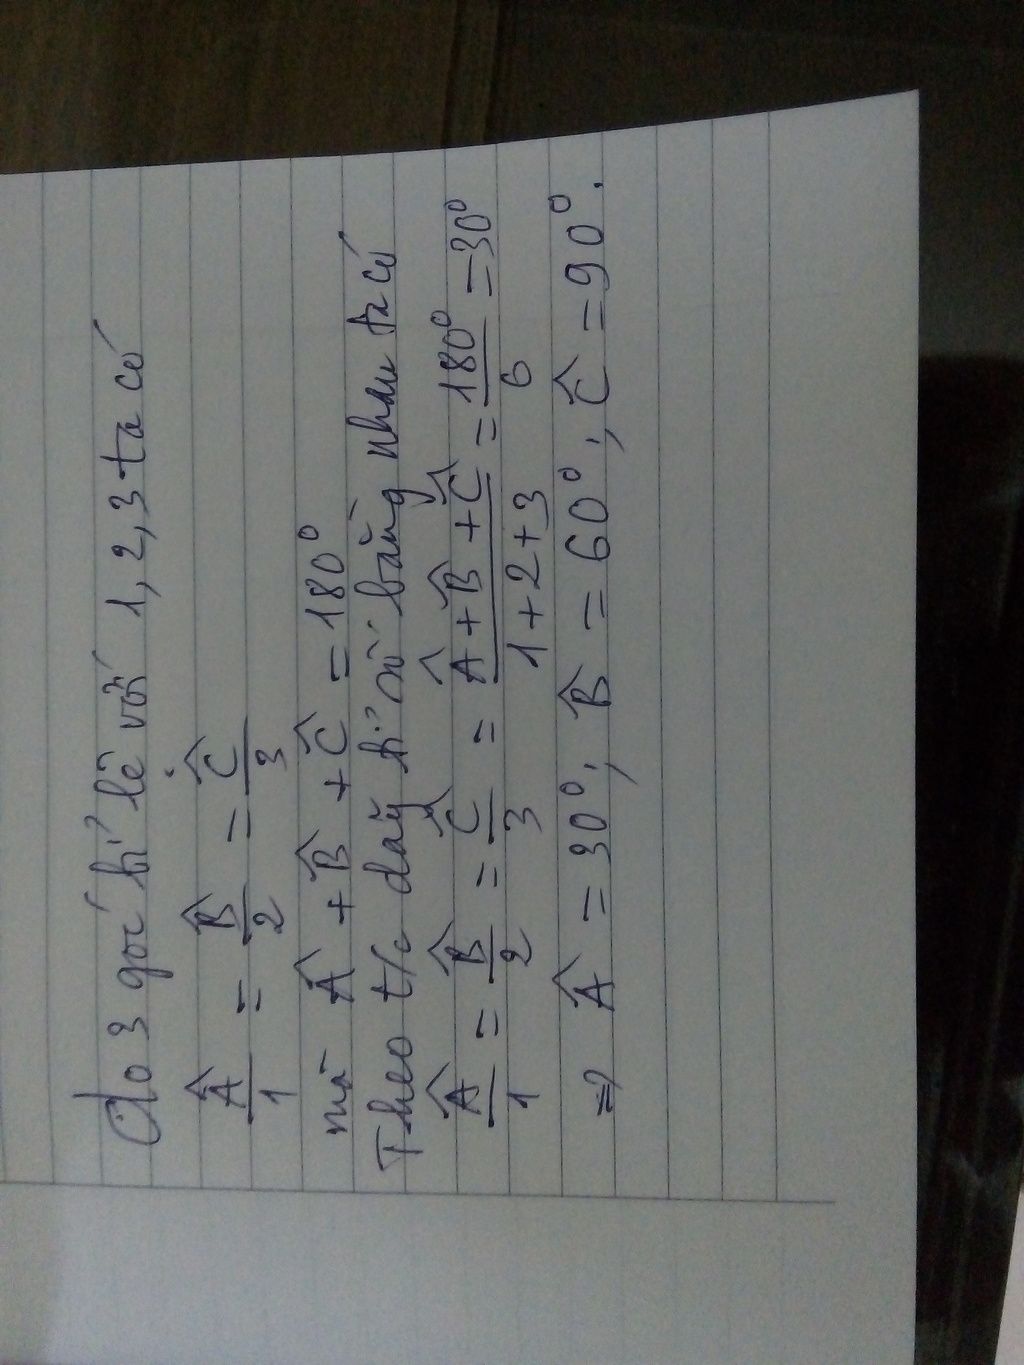 do 3 góc tỉ lệ với 1, 2, 3 ta có
Â/1 = B̂/2 = Ĉ/3
mà Â + B̂ + Ĉ = 180°
Theo t/c dãy tỉ số bằng nhau ta có
Â/1 = B̂/2 = Ĉ/3 = (Â + B̂ + Ĉ)/(1 + 2 + 3) = 180°/6 = 30°
=> Â = 30°, B̂ = 60°, Ĉ = 90°.